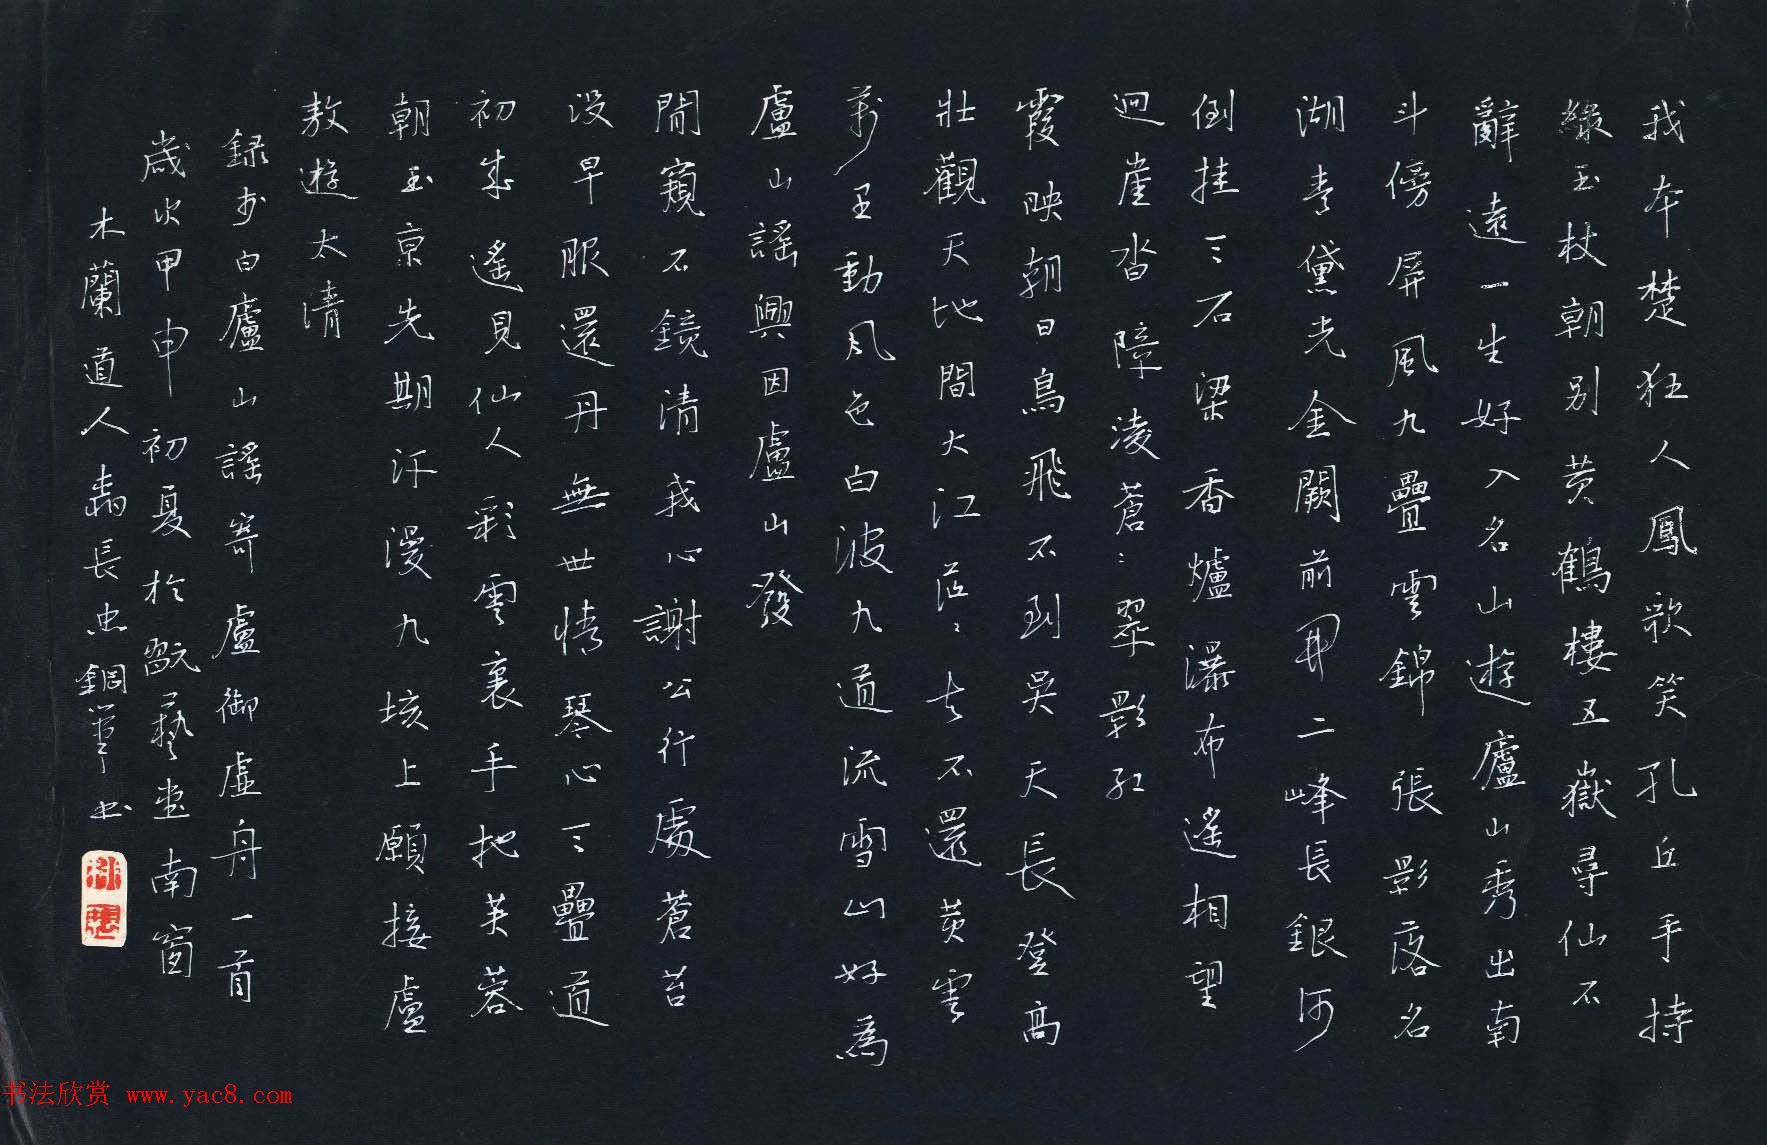 我本楚狂人鳳歌笑孔丘手持
綠玉杖朝别黄鶴樓五嶽尋仙不
辭遠一生好入名山遊廬山秀出南
斗傍屏風九疊雲錦張影落名
湖青黛光金闕前開二峰長銀河
倒挂三石梁香爐瀑布遙相望
迴崖沓障淩蒼〻翠影紅
霞映朝日鳥飛不到吳天長登高
壯觀天地間大江茫〻去不還黄雲
萬里動風色白波九道流雪山好為
廬山謠興因廬山發
閒窺石鏡清我心謝公行處蒼苔
没早服還丹無世情琴心三疊道
初成遙見仙人彩雲裏手把芙蓉
朝玉京先期汗漫九垓上願接盧
敖遊太清
録李白廬山謠寄盧御虚舟一首
歲次甲申初夏於翫藝堂南窗
木蘭道人 長忠鋼筆书
书法欣赏 www.yac8.com